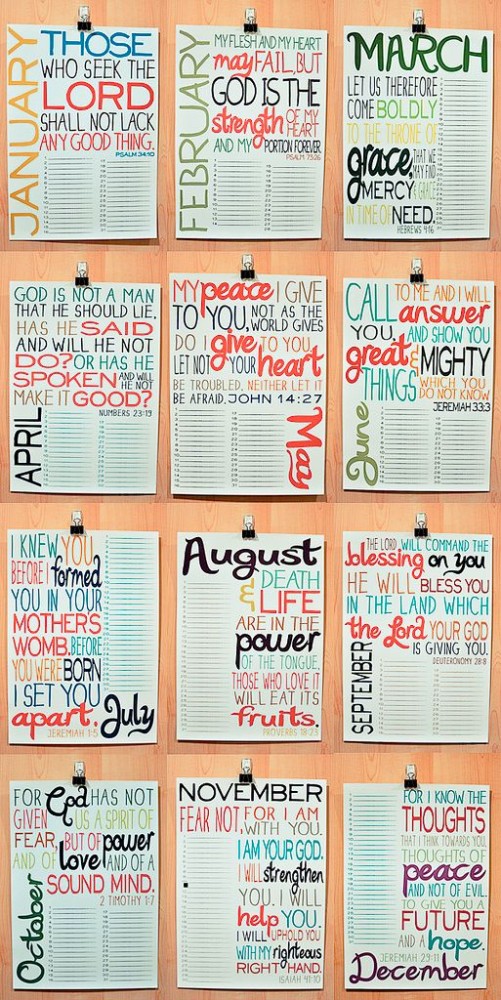 JANUARY
THOSE
WHO SEEK THE
LORD
SHALL NOT LACK
ANY GOOD THING.
PSALM 34:10
FEBRUARY
MY FLESH AND MY HEART
may FAIL, BUT
GOD IS THE
strength OF MY HEART
AND MY PORTION FOREVER
PSALM 73:26
MARCH
LET US THEREFORE
COME BOLDLY
TO THE THRONE OF
grace, THAT WE MAY FIND
MERCY & GRACE
IN TIME OF NEED.
HEBREWS 4:16
GOD IS NOT A MAN
THAT HE SHOULD LIE,
HAS HE SAID
AND WILL HE NOT
DO? OR HAS HE
SPOKEN AND WILL HE NOT
MAKE IT GOOD?
NUMBERS 23:19
APRIL
MY peace I GIVE
TO YOU, NOT AS THE WORLD GIVES
DO I give TO YOU.
LET NOT YOUR heart
BE TROUBLED, NEITHER LET IT
BE AFRAID. JOHN 14:27
May
CALL TO ME AND I WILL
answer
YOU, AND SHOW YOU
great & MIGHTY
THINGS WHICH YOU DO NOT KNOW
JEREMIAH 33:3
June
I KNEW YOU
BEFORE I formed
YOU IN YOUR
MOTHERS
WOMB. BEFORE
YOU WERE BORN
I SET YOU
apart. July
JEREMIAH 1:5
August
DEATH
& LIFE
ARE IN THE
power
OF THE TONGUE,
THOSE WHO LOVE IT
WILL EAT ITS
fruits.
PROVERBS 18:21
THE LORD WILL COMMAND THE
blessing on you
HE WILL BLESS YOU
IN THE LAND WHICH
the Lord YOUR GOD
IS GIVING YOU.
DEUTERONOMY 28:8
SEPTEMBER
FOR God HAS NOT
GIVEN US A SPIRIT OF
FEAR, BUT OF power
AND OF love AND OF A
SOUND MIND.
2 TIMOTHY 1:7
October
NOVEMBER
FEAR NOT, FOR I AM
WITH YOU.
I AM YOUR GOD.
I WILL strengthen
YOU. I WILL
help YOU.
I WILL UPHOLD YOU
WITH MY righteous
RIGHT HAND.
ISAIAH 41:10
FOR I KNOW THE
THOUGHTS
THAT I THINK TOWARDS YOU,
THOUGHTS OF
peace
AND NOT OF EVIL.
TO GIVE YOU A
FUTURE
AND A hope.
JEREMIAH 29:11
December